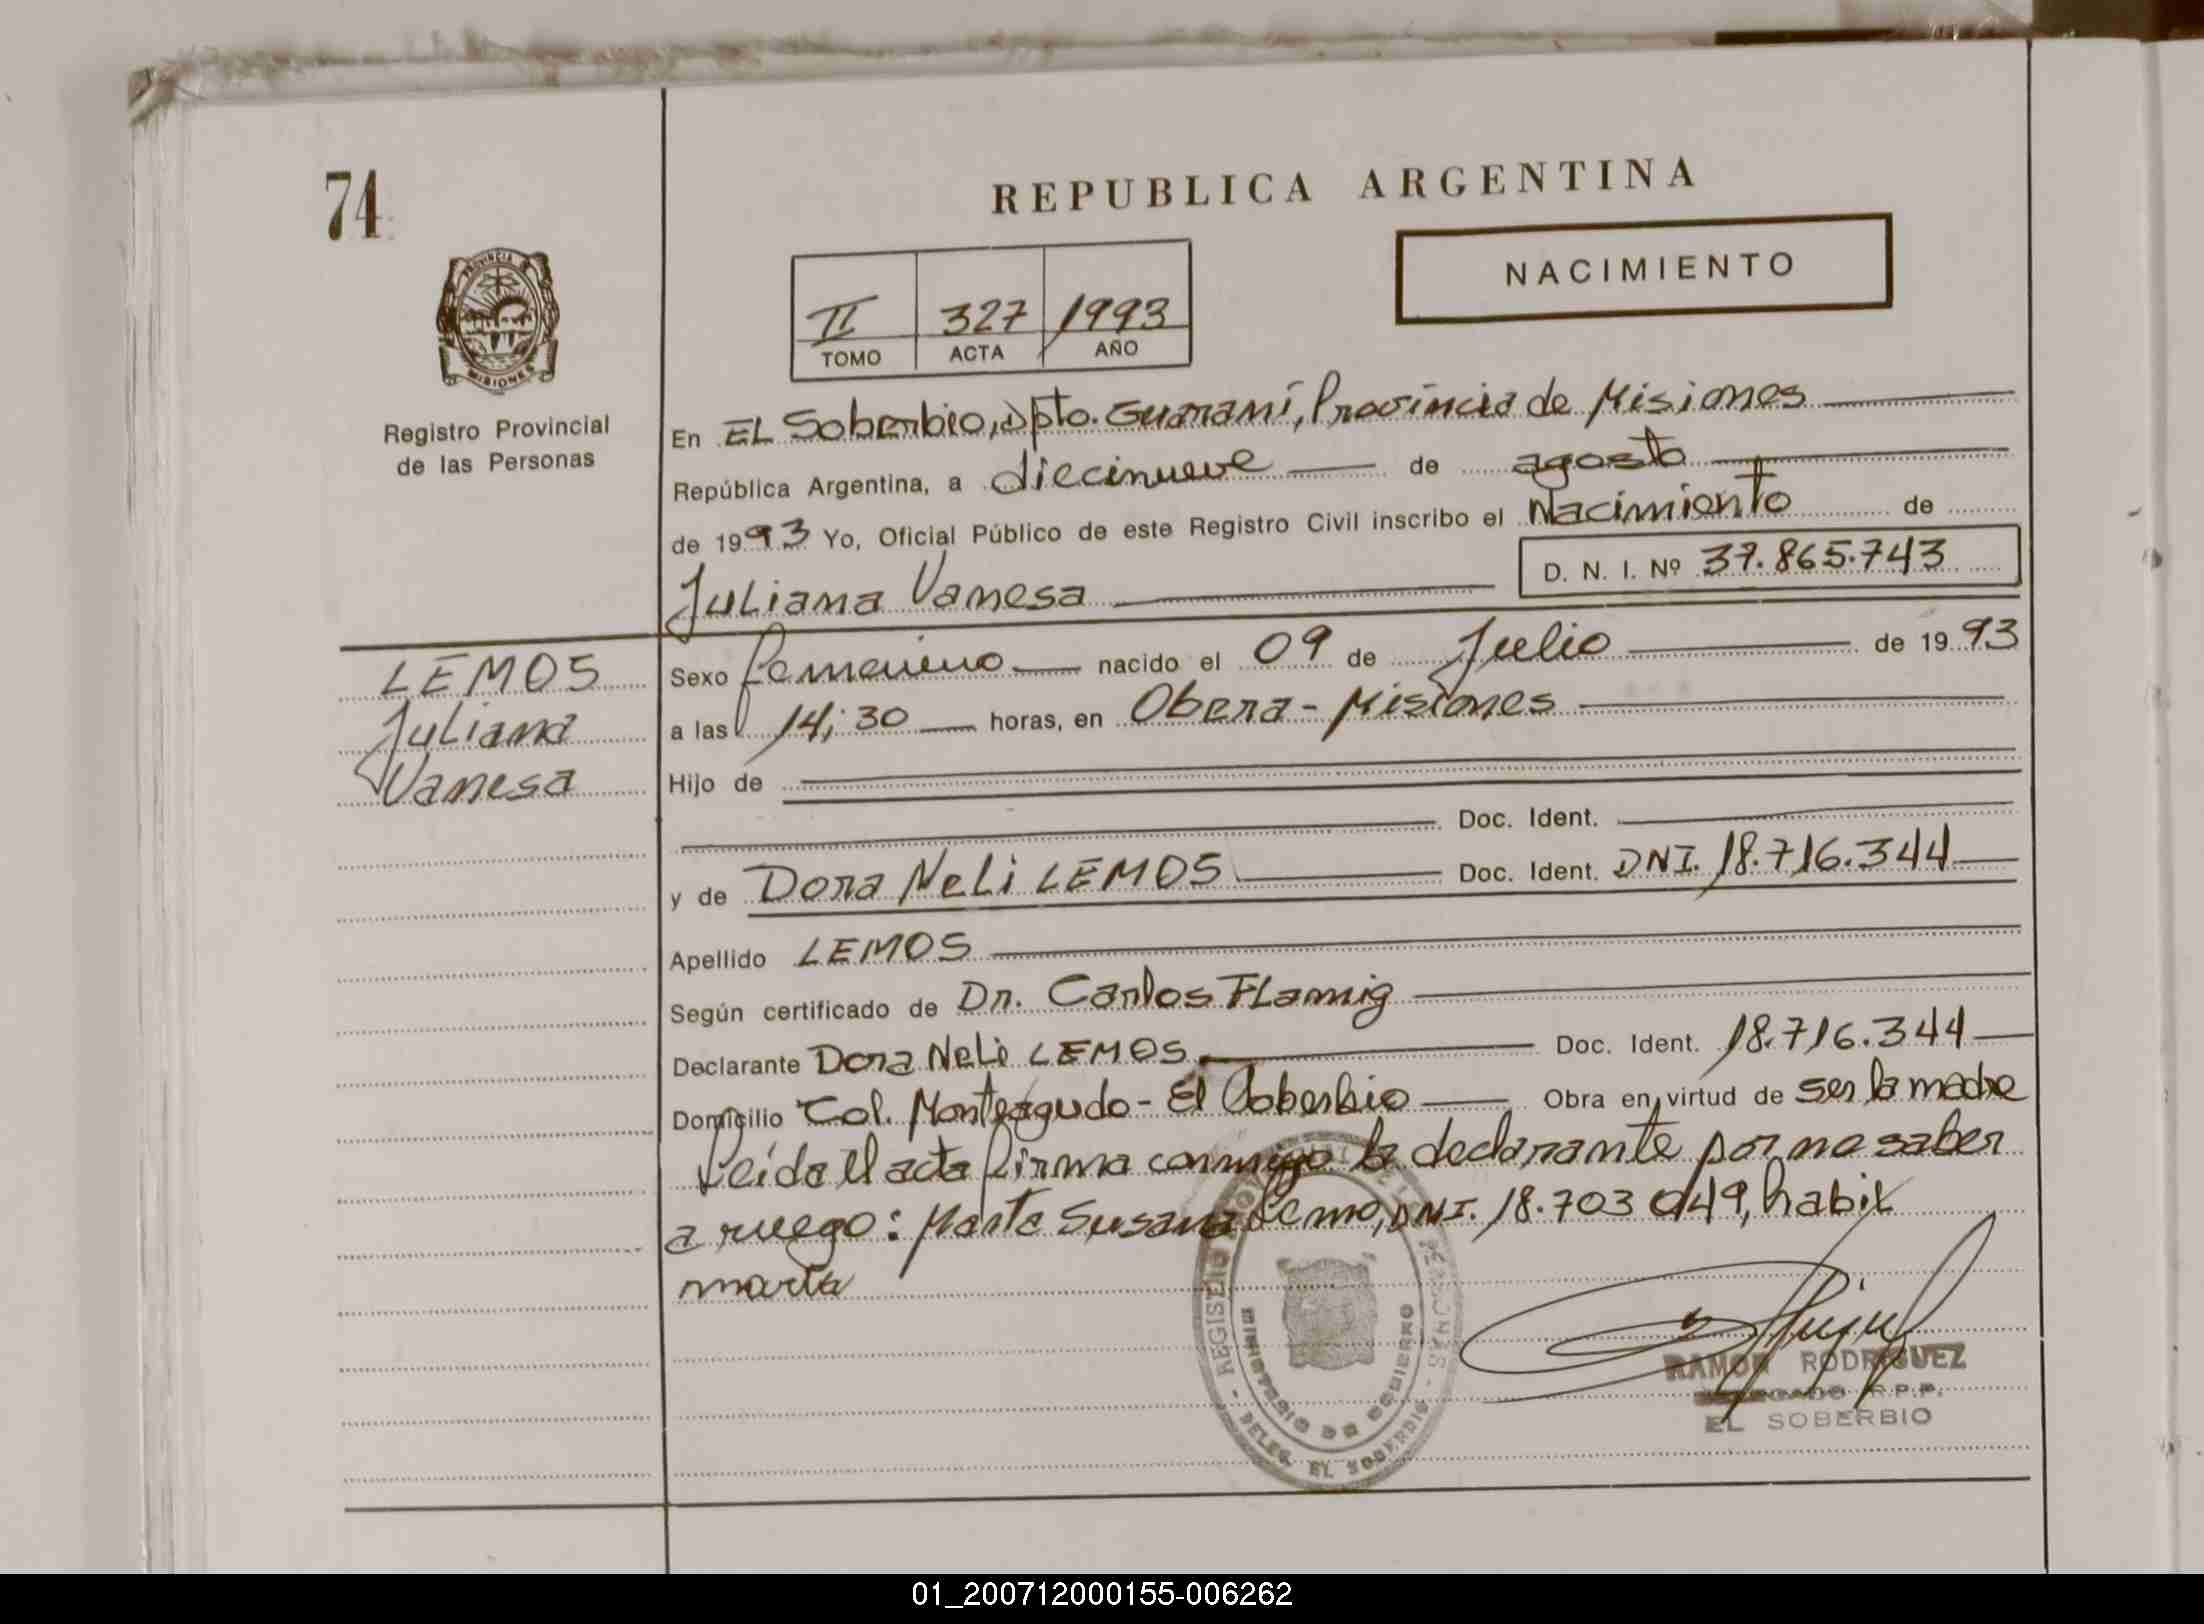 74
REPUBLICA ARGENTINA
NACIMIENTO
PROVINCIA DE
MISIONES
II 327 1993
TOMO ACTA AÑO
Registro Provincial
de las Personas
En EL Soberbio, Dpto. Guaraní, Provincia de Misiones
República Argentina, a diecinueve de agosto
de 1993 Yo, Oficial Público de este Registro Civil inscribo el Nacimiento de
D. N. I. Nº 37.865.743
Juliana Vanesa
LEMOS
Juliana
Vanesa
Sexo femenino nacido el 09 de Julio de 1993
a las 14;30 horas, en Obera - Misiones
Hijo de
Doc. Ident.
y de Dora Neli LEMOS Doc. Ident. DNI. 18.716.344
Apellido LEMOS
Según certificado de Dr. Carlos FLamig
Declarante Dora Neli LEMOS Doc. Ident. 18.716.344
Domicilio Col. Monteagudo - El Soberbio Obra en virtud de ser la madre
Leída el acta firma conmigo la declarante por no saber
a ruego: Marta Susana Lemo, DNI. 18.703 049, habil
marta
REGISTRO PROVINCIAL DE LAS PERSONAS - DELEG. EL SOBERBIO -
MINISTERIO DE GOBIERNO
RAMON RODRIGUEZ
DELEGADO R.P.P.
EL SOBERBIO
01_200712000155-006262